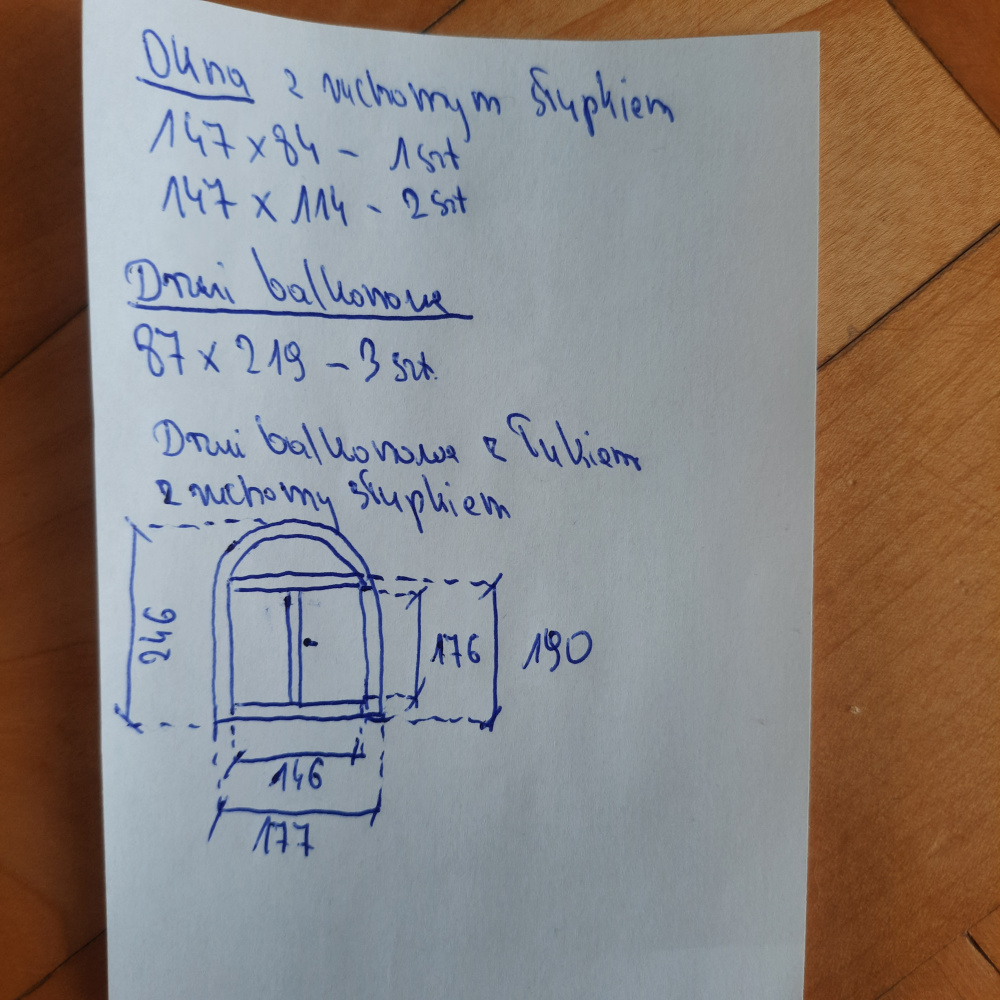 Okna z ruchomym słupkiem
147 x 84 - 1 szt
147 x 114 - 2 szt
Drzwi balkonowe
87 x 219 - 3 szt.
Drzwi balkonowe z łukiem
z ruchomy słupkiem
246
176
190
146
177